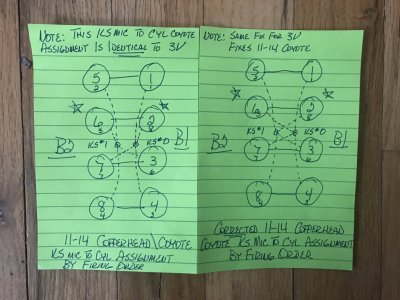 NOTE: THIS KS MIC TO CYL COYOTE
ASSIGNMENT IS IDENTICAL TO 3V
5
2
1
1
6
5
2
8
B2
KS#1
KS#0
B1
7
4
3
6
8
4
11-14 COPPERHEAD\COYOTE
KS MIC TO CYL ASSIGNMENT
BY FIRING ORDER
NOTE: SAME FIX FOR 3V
FIXES 11-14 COYOTE
5
2
1
1
6
2
8
B2
KS#1
KS#0
B1
7
3
6
8
4
CORRECTED 11-14 COPPERHEAD
COYOTE KS MIC TO CYL ASSIGNMENT
BY FIRING ORDER